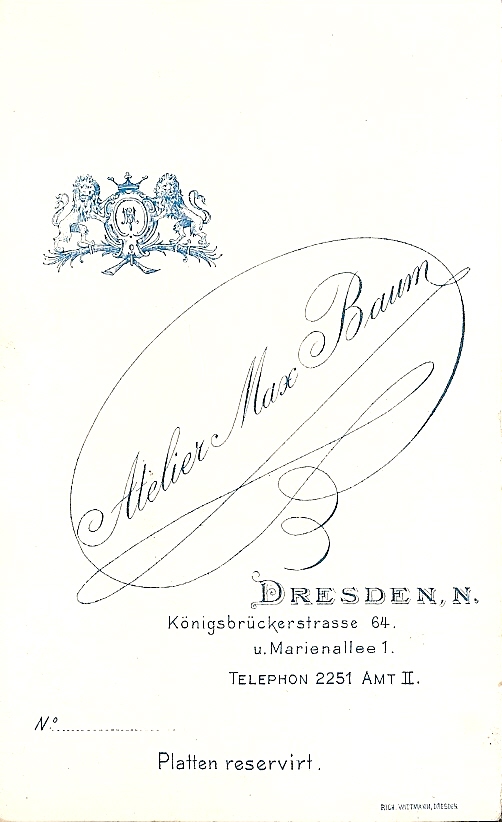 Atelier Max Baum
DRESDEN, N.
Königsbrückerstrasse 64.
u. Marienallee 1.
TELEPHON 2251 AMT II.
No.
Platten reservirt.
RICH. WITTMANN, DRESDEN